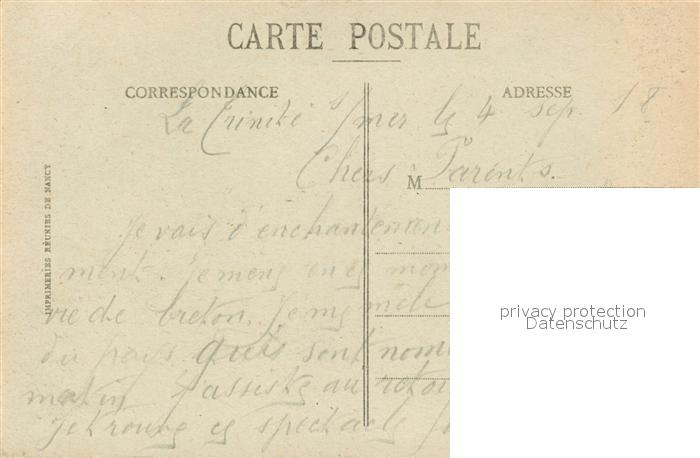 CARTE POSTALE
CORRESPONDANCE
ADRESSE
La Trinité s/mer le 4 sep. 18
Chers Parents.
M
Je vais d'enchantement
ment. Je mène ici
vie de breton. Je me mêle
du pays qui sont nom
matin j'assiste au retou
Je trouve ce spectacle
IMPRIMERIES RÉUNIES DE NANCY
privacy protection
Datenschutz